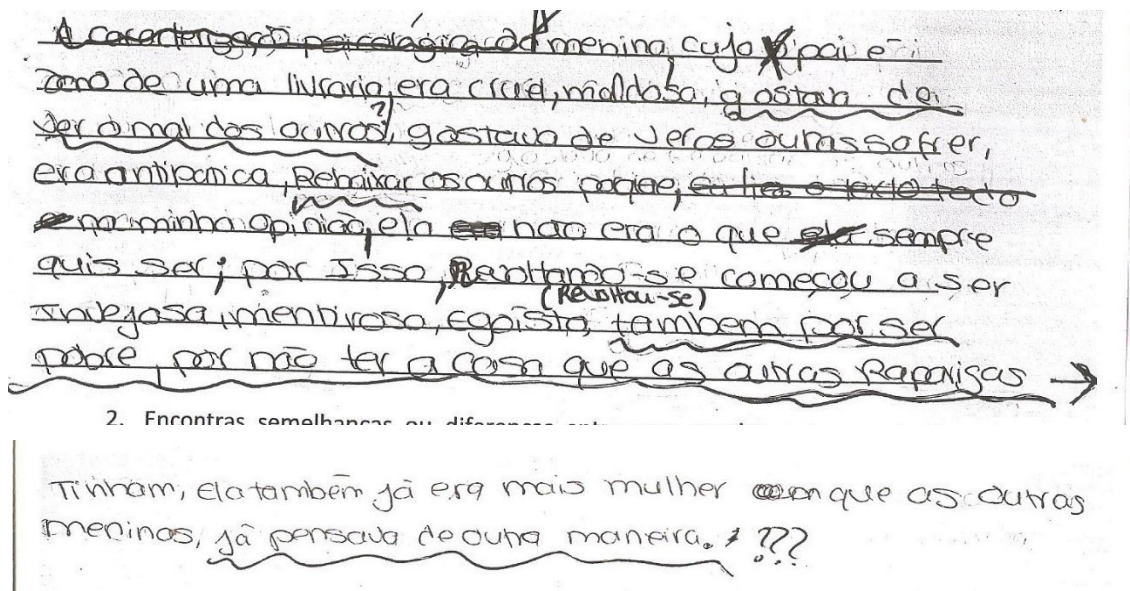 A caracterização psicologica da menina, cujo o pai é
dono de uma livraria, era cruel, maldosa, gostava de
ver o mal dos outros?, gostava de ver os outros sofrer,
era antipatica, Rebaixar os outros porque, eu li o texto todo
na minha opinião, ela não era o que ela sempre
quis ser; por Isso, Revoltando-se começou a ser
(Revoltou-se)
Invejosa, mentirosa, Egoista, tambem por ser
pobre, por não ter a casa que as outras Raparigas →
2. Encontras semelhanças ou diferenças
Tinham, ela também já era mais mulher que as outras
meninas, já pensava de outra maneira. ???